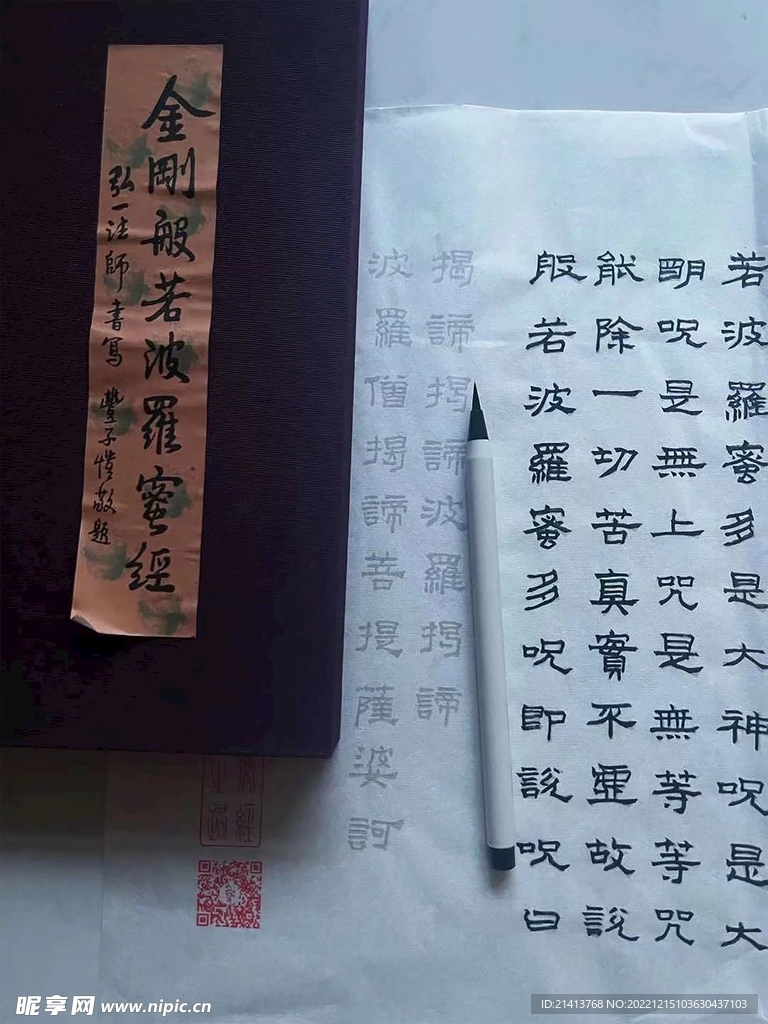 金剛般若波羅蜜經
弘一法師書寫 豐子愷敬題
若波羅蜜多是大神呪是大
明呪是無上咒是無等等咒
能除一切苦真實不虛故說
般若波羅蜜多呪即說呪曰
揭諦揭諦波羅揭諦
波羅僧揭諦菩提薩婆訶
昵享网 www.nipic.cn
ID:21413768 NO:20221215103630437103